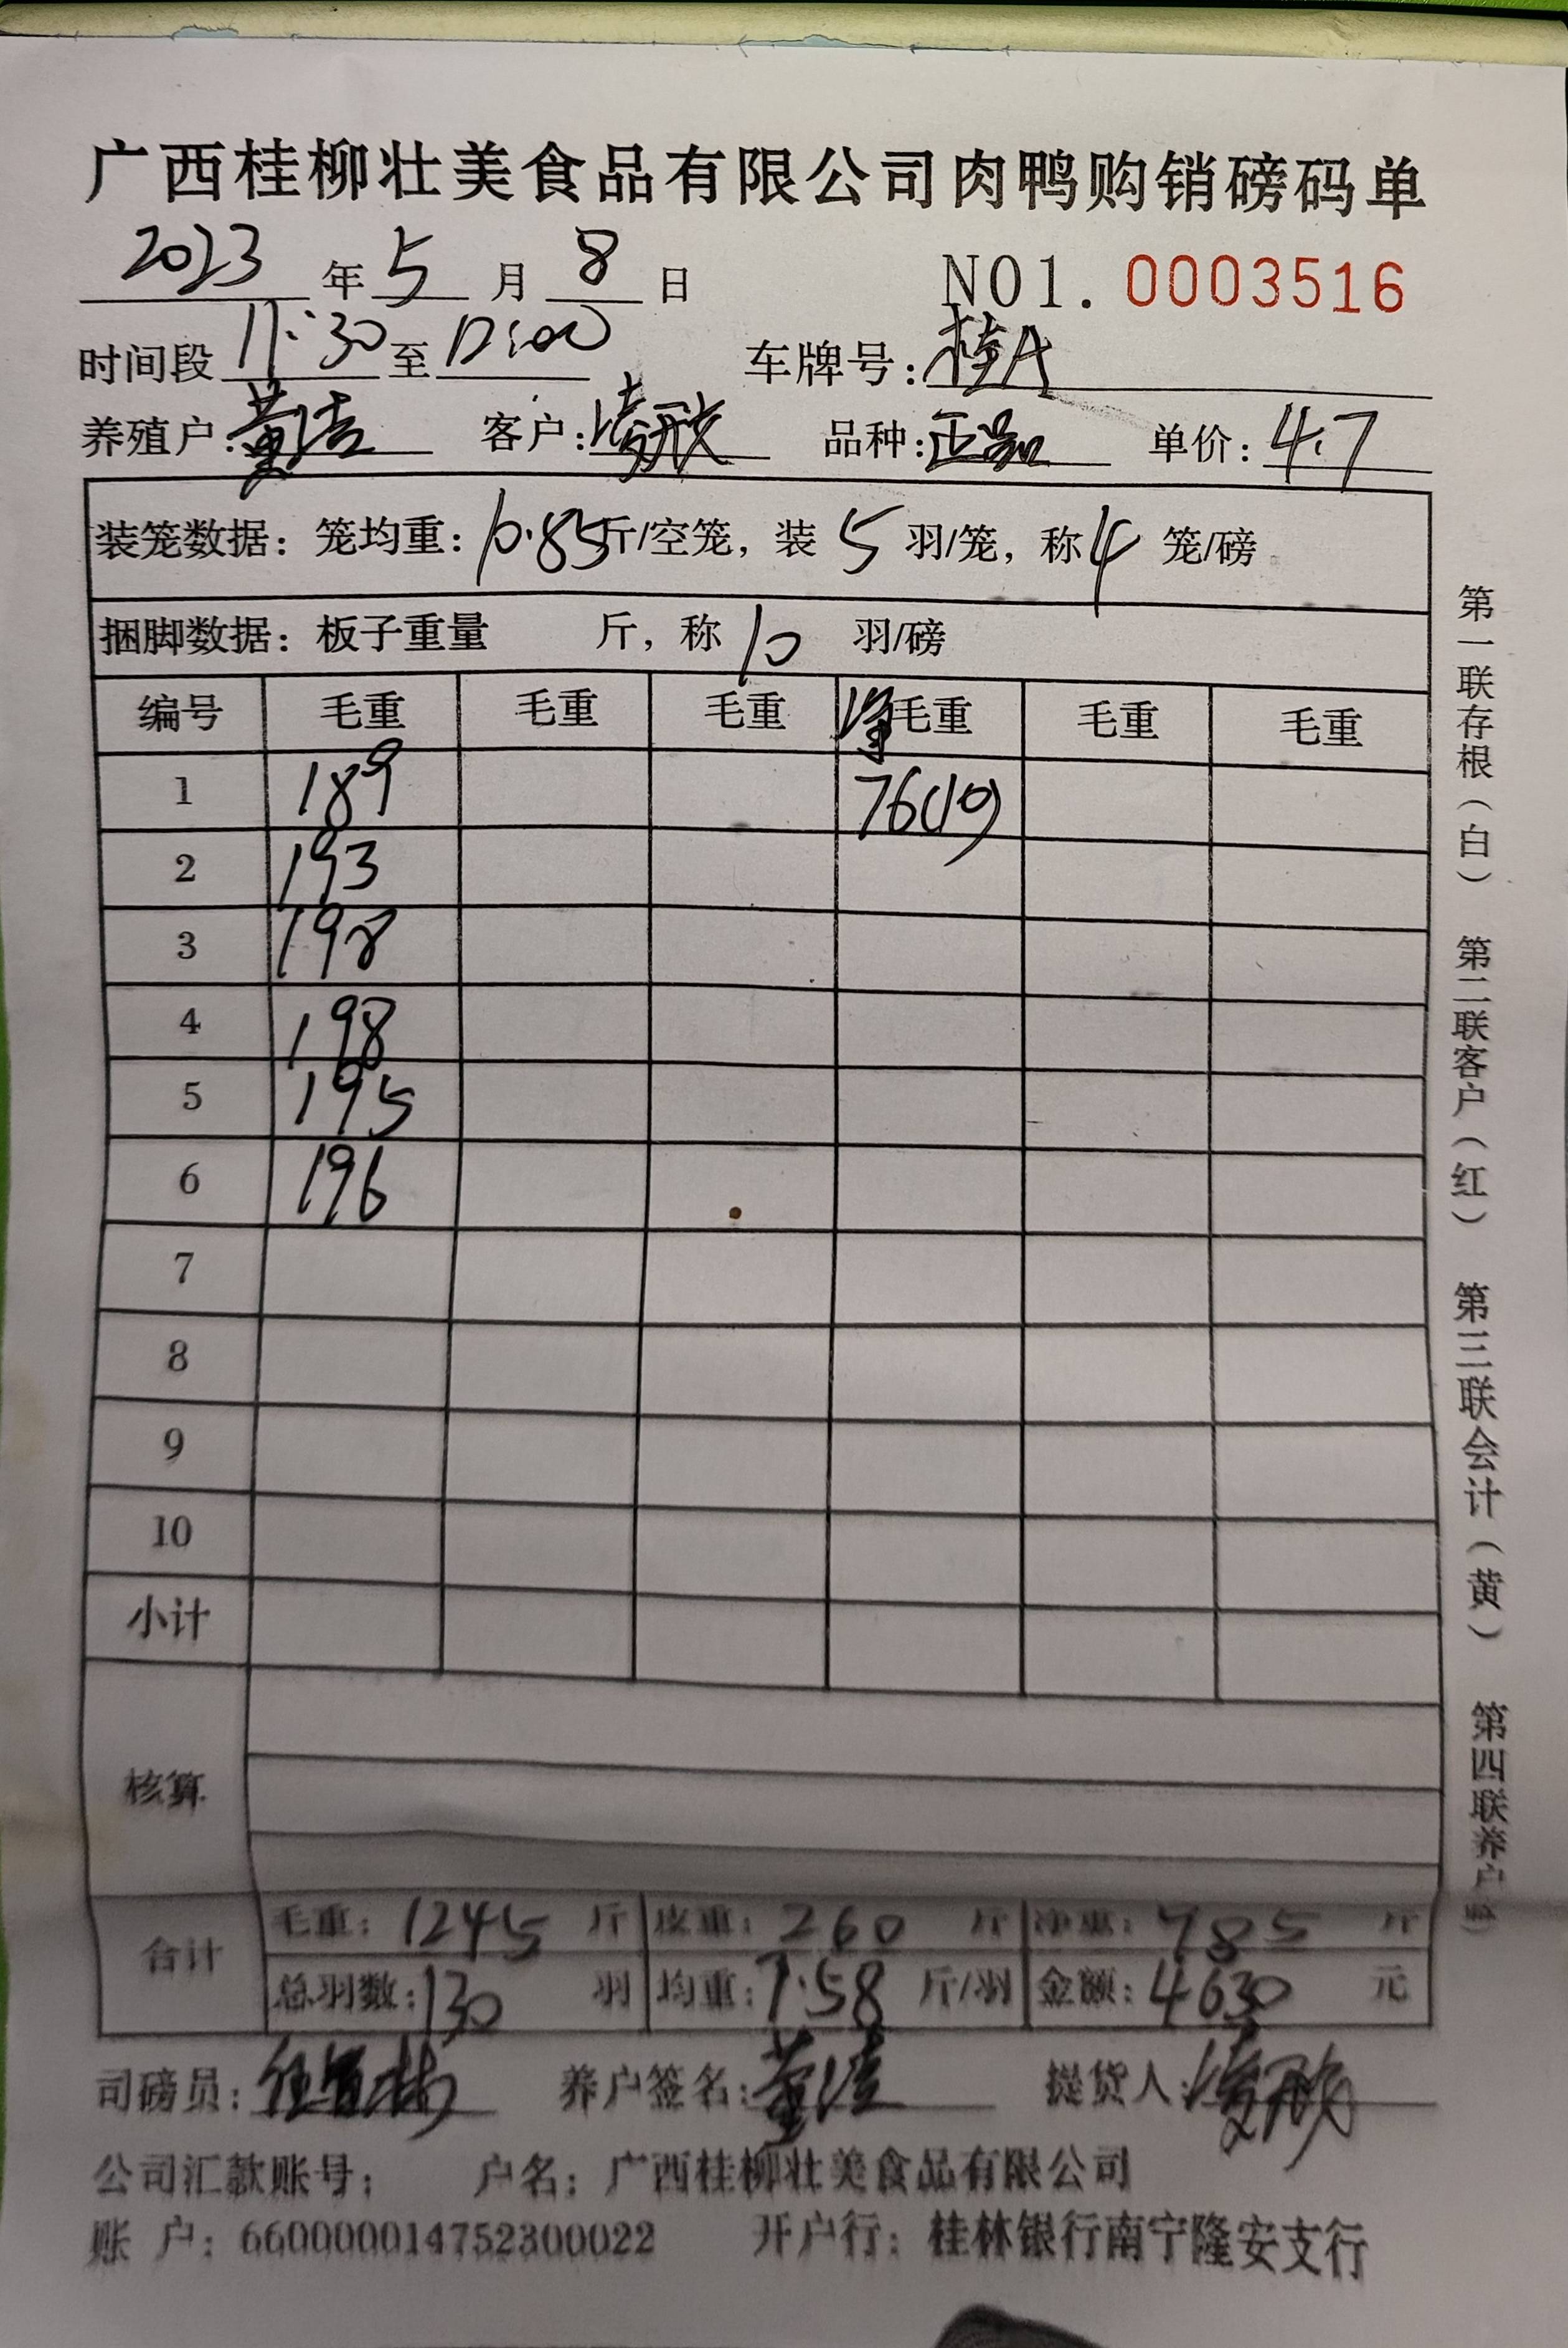 广西桂柳壮美食品有限公司肉鸭购销磅码单
2023 年 5 月 8 日 NO1. 0003516
时间段 11:30 至 12:00 车牌号: 桂A
养殖户: 黄 客户: 凌 品种: 正品 单价: 4.7
装笼数据: 笼均重: 10.85 斤/空笼, 装 5 羽/笼, 称 4 笼/磅
捆脚数据: 板子重量 斤, 称 10 羽/磅
编号 毛重 毛重 毛重 净 毛重 毛重 毛重
1 189 76(10)
2 193
3 198
4 198
5 195
6 196
7
8
9
10
小计
核算
合计
毛重: 1245 斤 皮重: 260 斤 净重: 985 斤
总羽数: 130 羽 均重: 7.58 斤/羽 金额: 4630 元
司磅员: 养户签名: 黄 提货人: 凌
公司汇款账号: 户名: 广西桂柳壮美食品有限公司
账 户: 660000014752300022 开户行: 桂林银行南宁隆安支行
第一联存根(白) 第二联客户(红) 第三联会计(黄) 第四联养户(蓝)